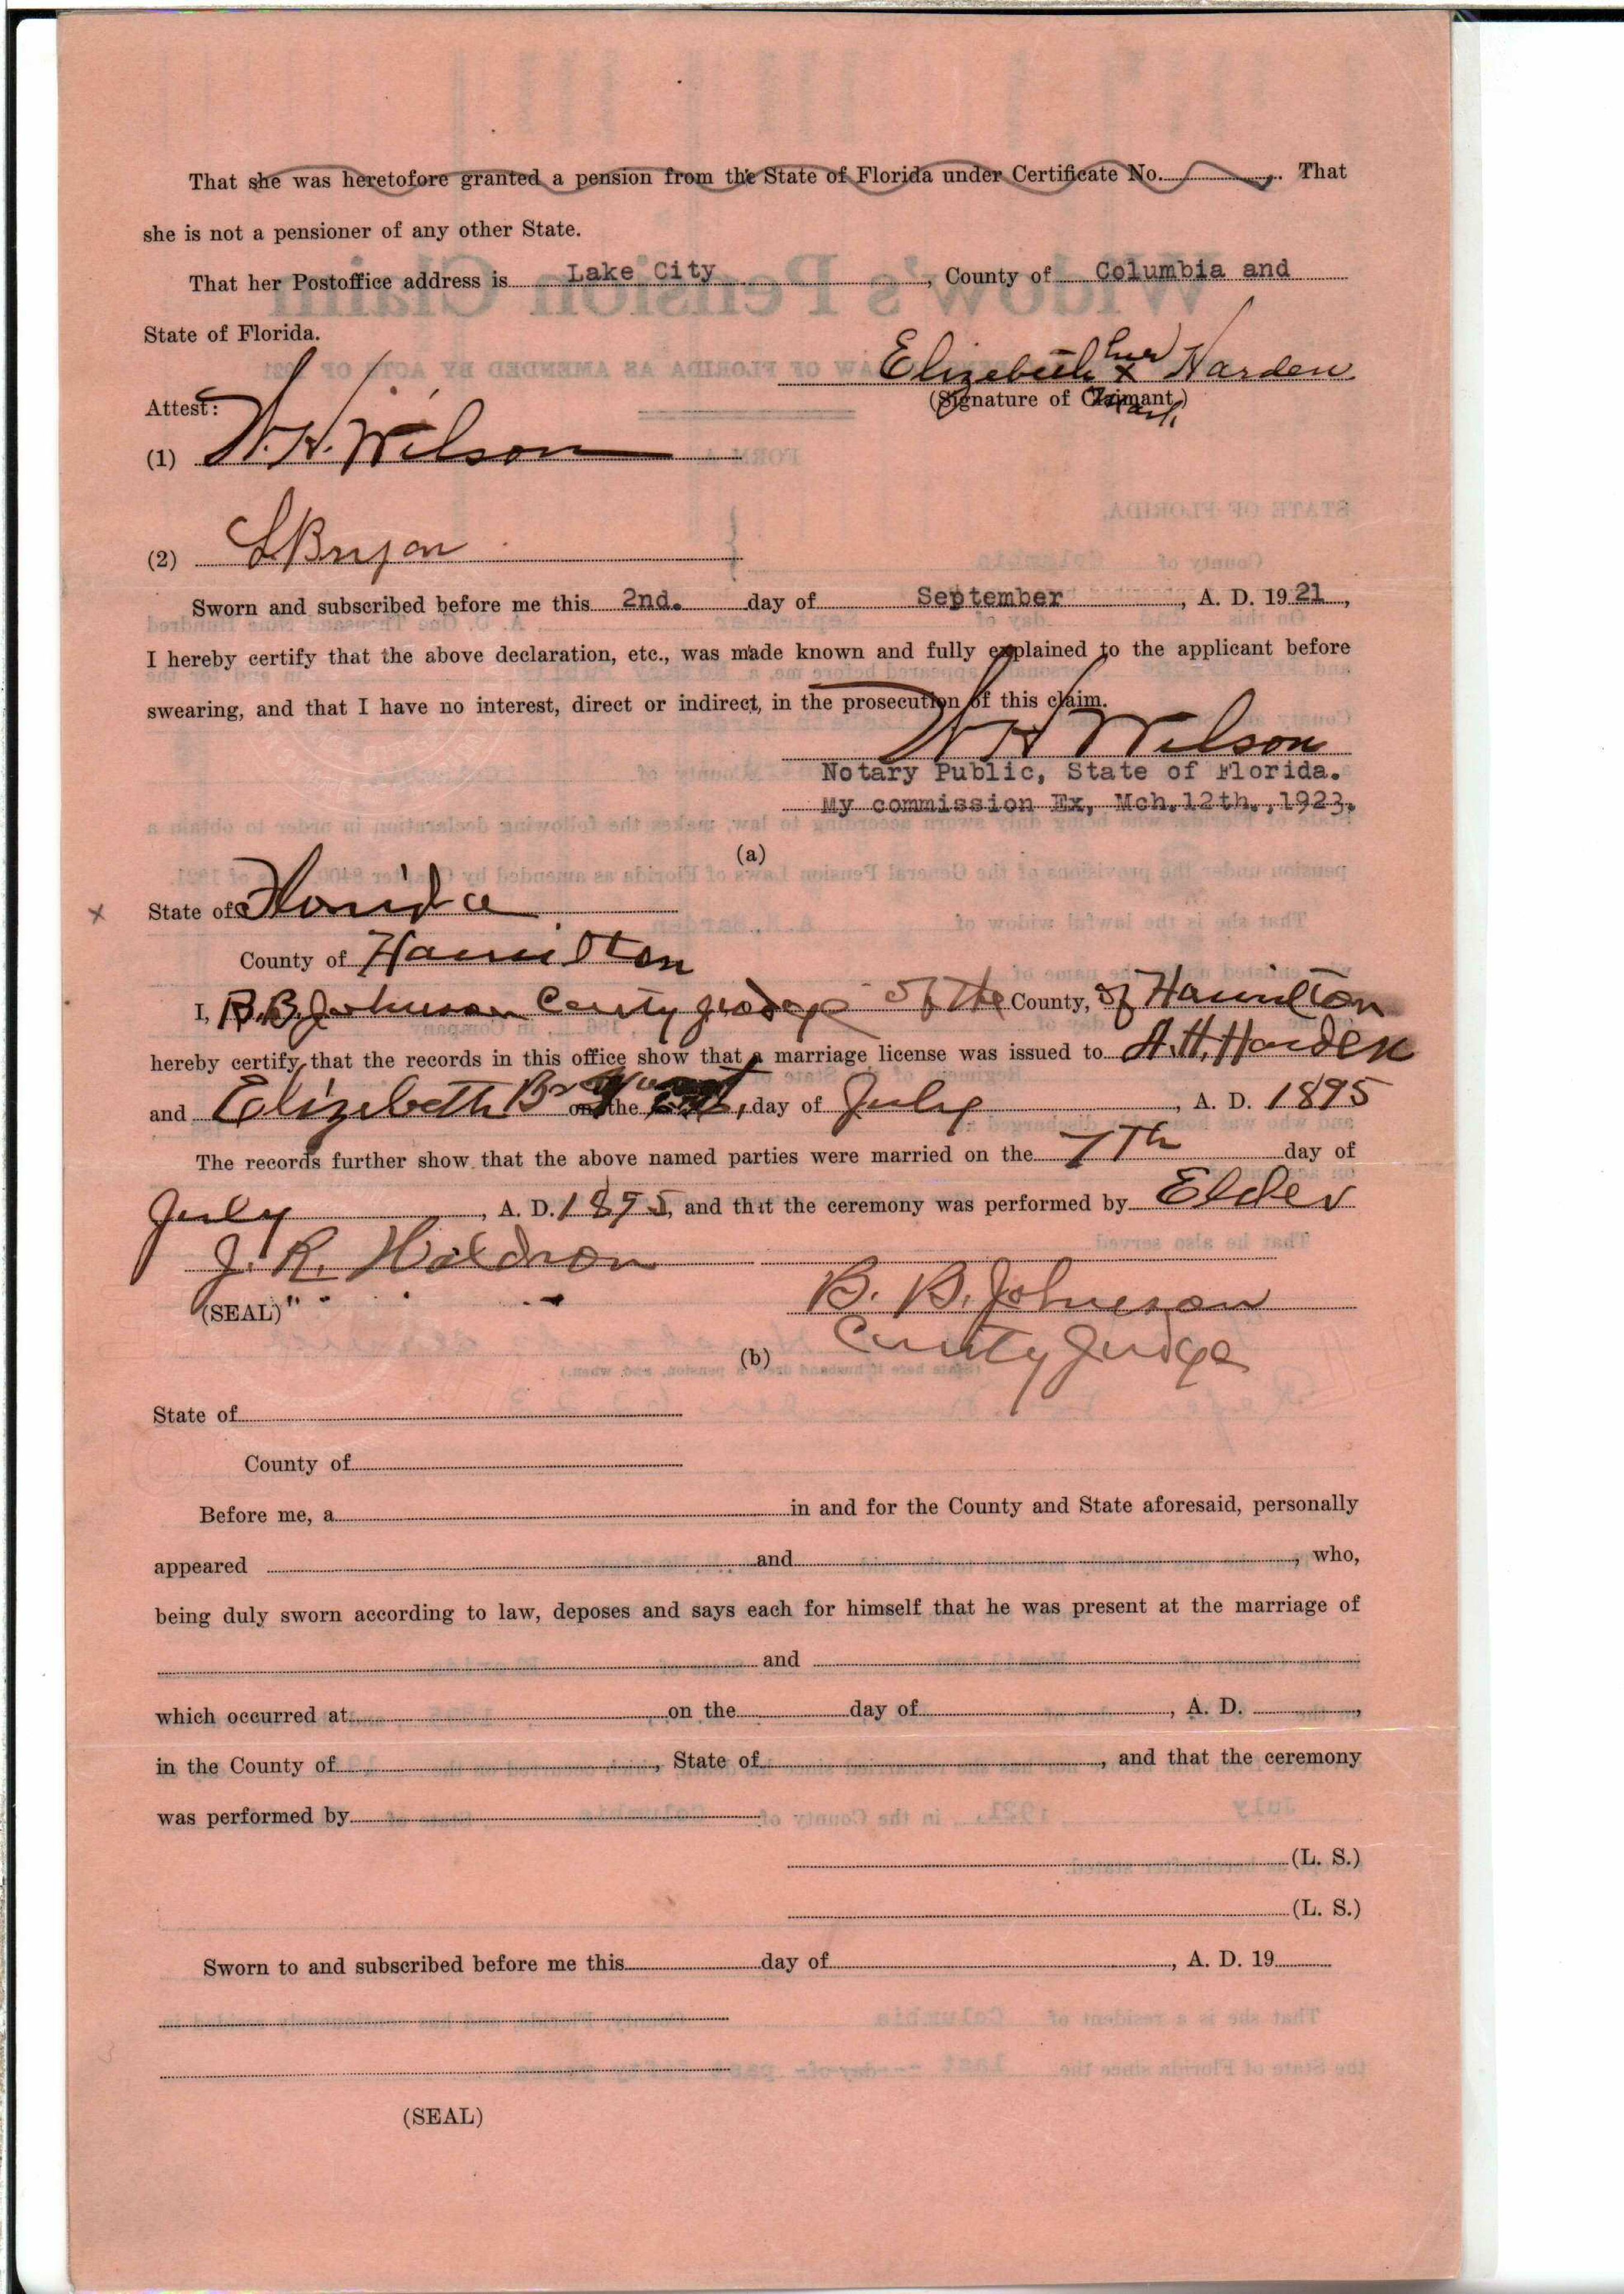 That she was heretofore granted a pension from the State of Florida under Certificate No. . That
she is not a pensioner of any other State.
That her Postoffice address is Lake City, County of Columbia and
State of Florida.
Elizebeth her x mark Harden
(Signature of Claimant.)
Attest:
(1) W. H. Wilson
(2) L Bryan
Sworn and subscribed before me this 2nd. day of September, A. D. 1921,
I hereby certify that the above declaration, etc., was made known and fully explained to the applicant before
swearing, and that I have no interest, direct or indirect, in the prosecution of this claim.
W H Wilson
Notary Public, State of Florida.
My commission Ex, Mch. 12th., 1923.
(a)
x State of Florida
County of Hamilton
I, B. B. Johnson County Judge of the County, of Hamilton
hereby certify that the records in this office show that a marriage license was issued to A. H. Harden
and Elizebeth on the day of July, A. D. 1895
The records further show that the above named parties were married on the 7th day of
July, A. D. 1895, and that the ceremony was performed by Elder
J. R. Waldron
B. B. Johnson
(SEAL)
County Judge
(b)
State of
County of
Before me, a in and for the County and State aforesaid, personally
appeared and , who,
being duly sworn according to law, deposes and says each for himself that he was present at the marriage of
and
which occurred at on the day of , A. D. ,
in the County of , State of , and that the ceremony
was performed by
(L. S.)
(L. S.)
Sworn to and subscribed before me this day of , A. D. 19
(SEAL)